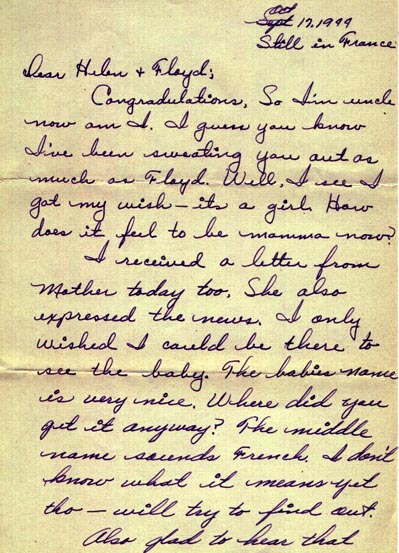 Oct
Sept 17, 1944
Still in France
Dear Helen + Floyd;
Congradulations, So I'm uncle
now am I. I guess you know
I've been sweating you out as
much as Floyd. Well, I see I
got my wish - its a girl. How
does it feel to be mamma now?
I received a letter from
Mother today too. She also
expressed the news. I only
wished I could be there to
see the baby. The babies name
is very nice. Where did you
get it anyway? The middle
name sounds French. I don't
know what it means yet
tho - will try to find out.
Also glad to hear that